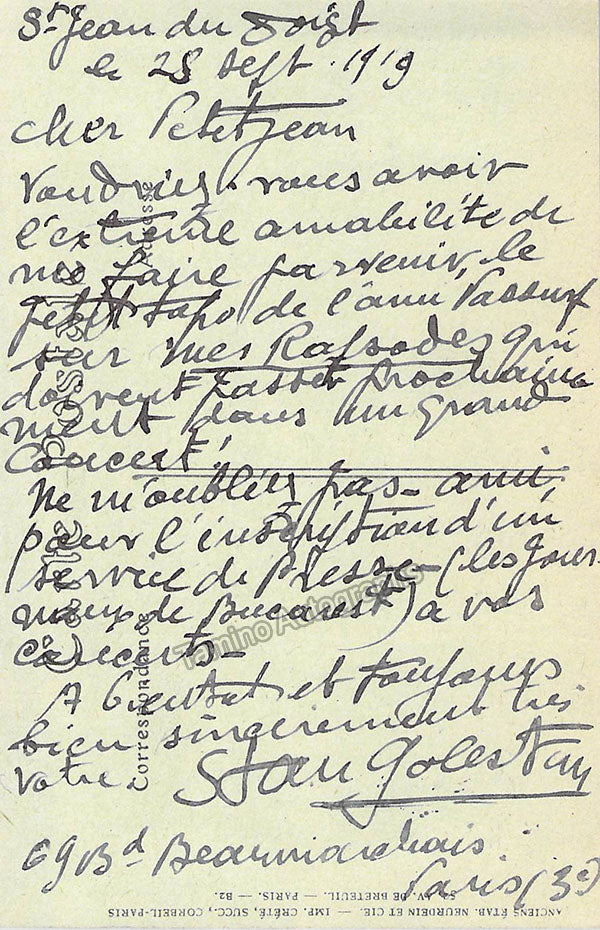 St Jean du Doigt
le 25 Sept. 1919
Cher Petitjean
Voudriez-vous avoir
l'extrême amabilité de
me faire parvenir, le
petit topo de l'ami
sur mes Rapsodes qui
doivent passer prochaine
ment dans un grand
Concert!
Ne m'oubliez pas - ami
pour l'inscription d'un
service de Presse - (les jour-
naux de Bucarest) à vos
concerts -
A bientôt et toujours
bien sincèrement très
votre.
Stan Golestan
69 Bd Beaumarchais
Paris (3e)
Correspondance
Adresse
Tamino Autographs
52, AV. DE BRETEUIL. — PARIS. — B2.
ANCIENS ÉTAB. NEURDEIN ET CIE. — IMP. CRÉTÉ, SUCC., CORBEIL-PARIS